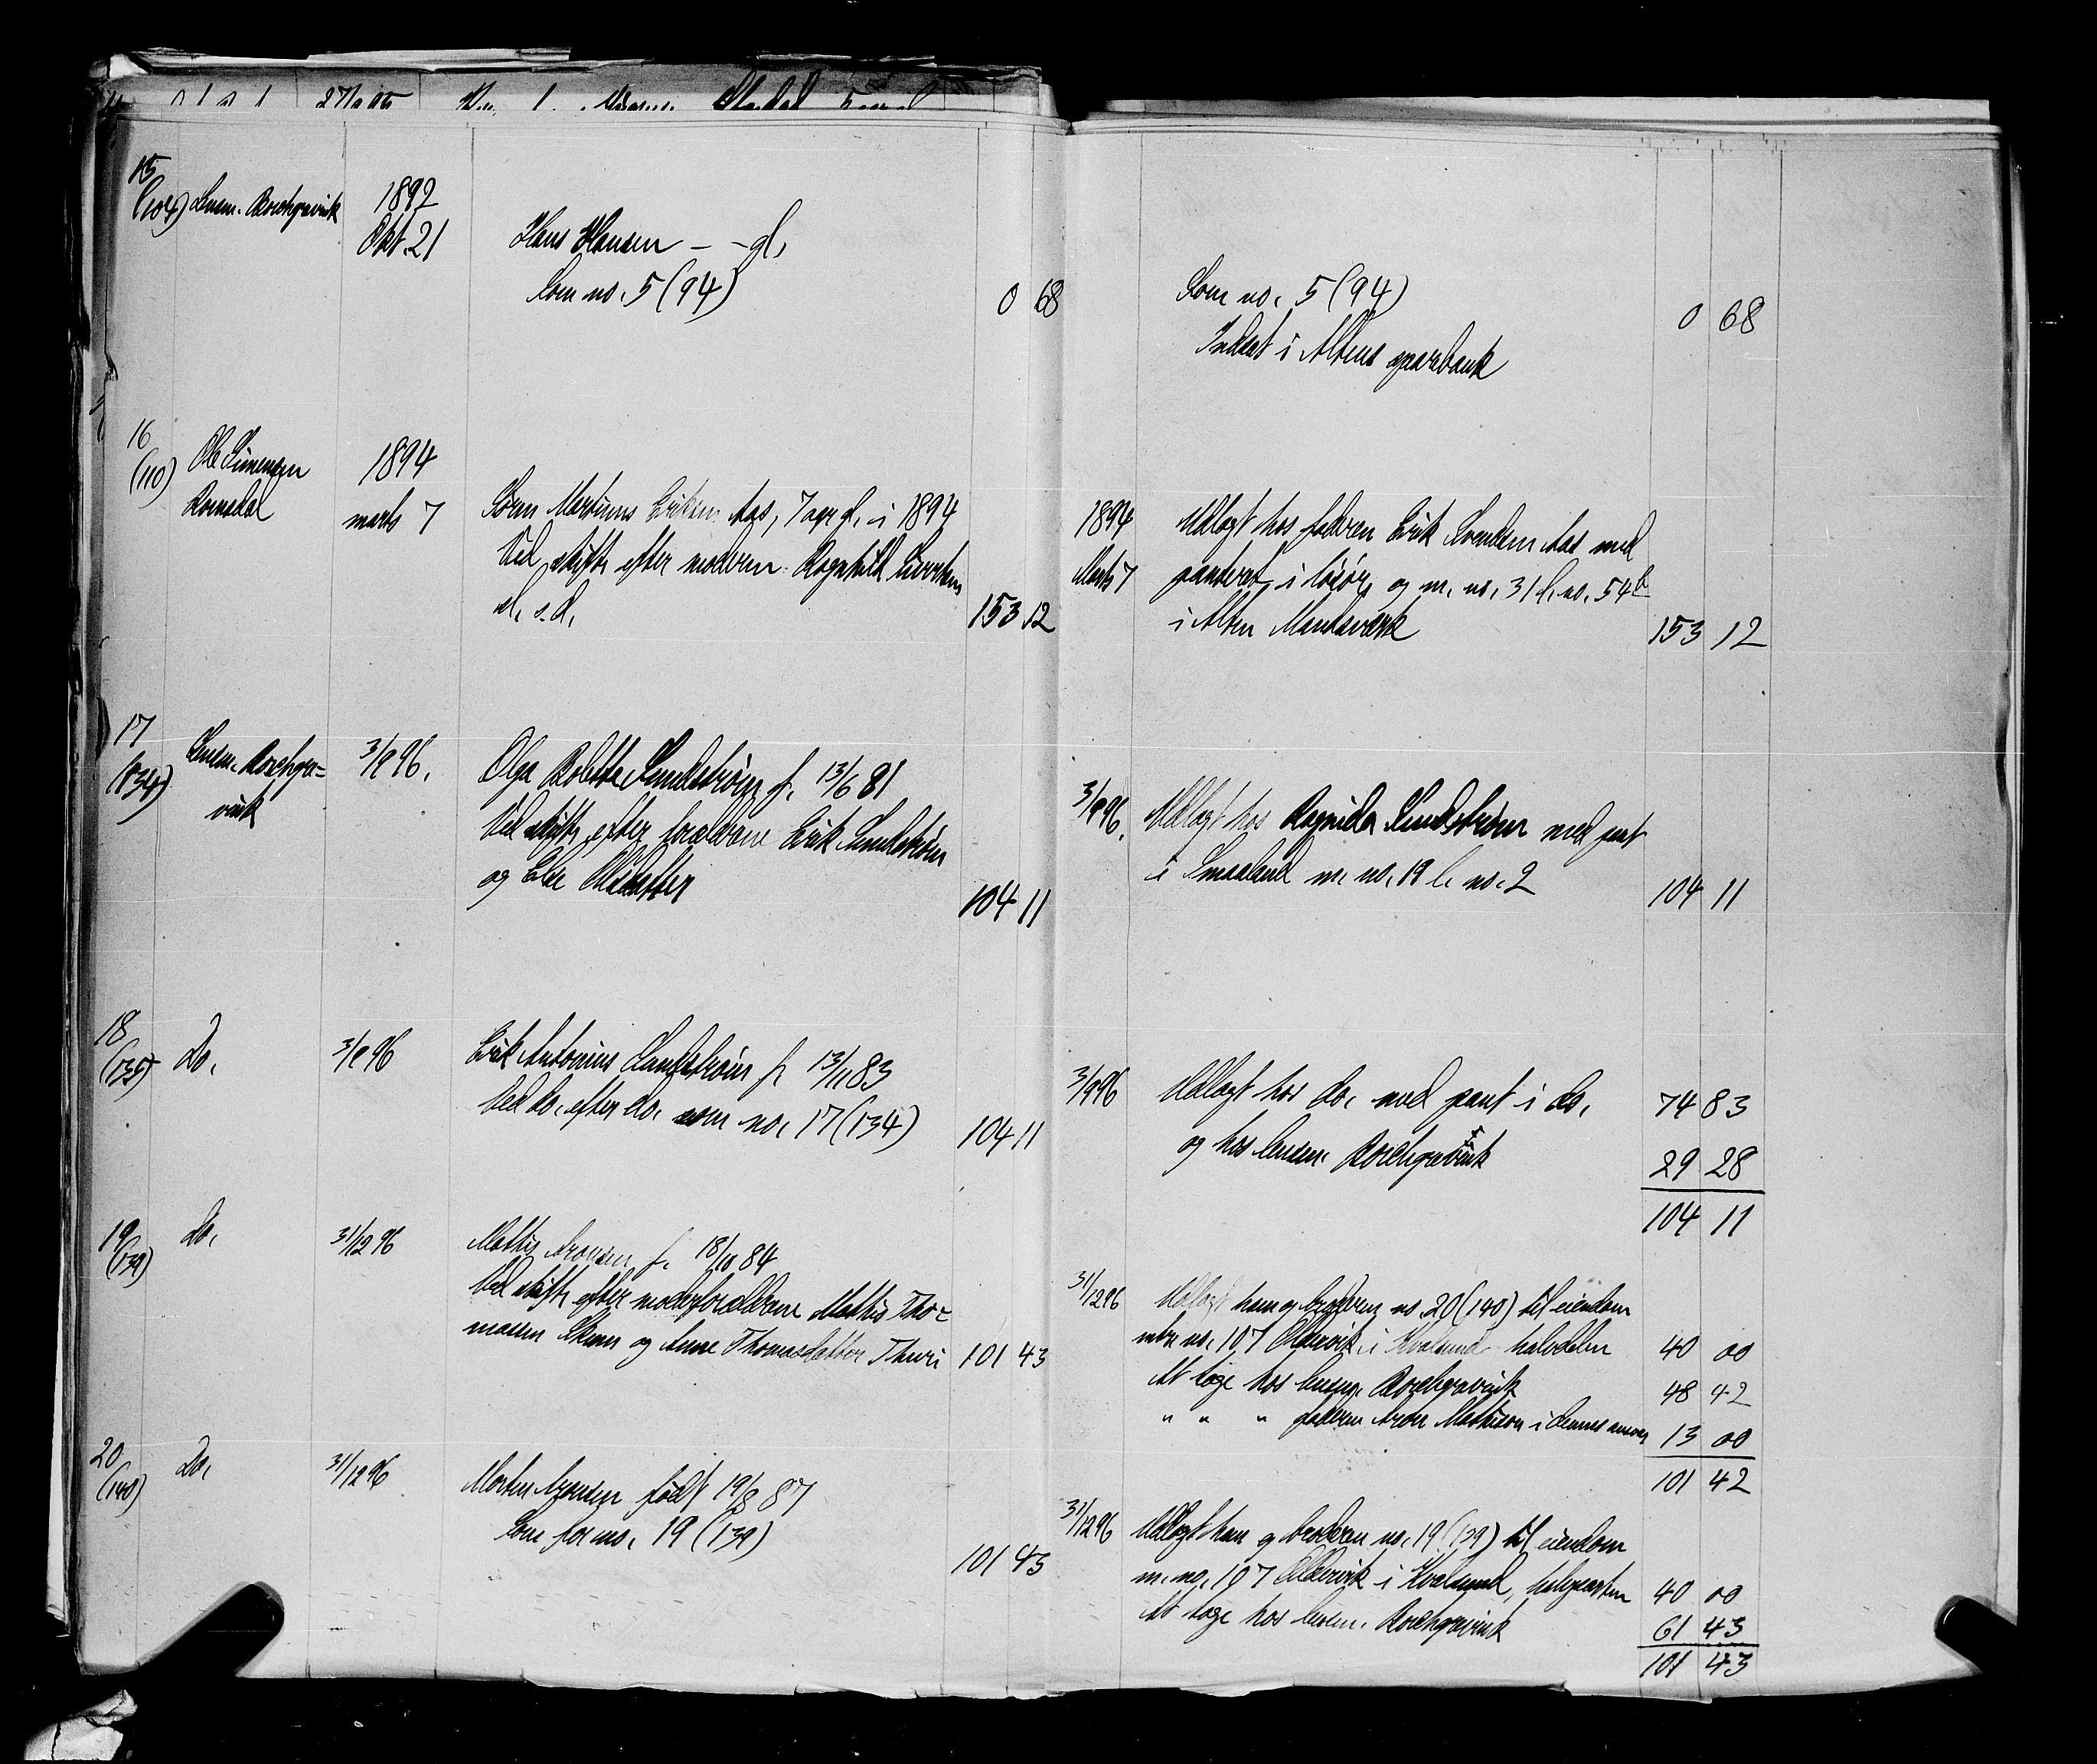 15
(104) Lensm. Borchgrevink
1892
Okt. 21
Hans Hansen – – gl.
Som no. 5 (94)
0 68
Som no. 5 (94)
0 68
Indsat i Altens sparebank
16
(110) Ole Simensen
Romsdal
1894
marts 7
Sören Martinus Eriksen Aas, 7 aar gl. i 1894
Ved skifte efter moderen Ragnhild
d. s. d.
153 12
1894
Marts 7
Udlagt hos faderen Erik Svendsen Aas med
panteret i løsøre og m. no. 31 l. no. 54b
i Alten
153 12
17
(134)
Lensm. Borchgre=
vink
3/9 96.
Olga Bolette Sundstrøm f. 13/6 81
Ved skifte efter forældrene Erik Sundstrøm
og Else Olsdatter
104 11
3/9 96.
Udlagt hos Sundstrøm med pant
i Smaaland m. no. 19 l. no. 2
104 11
18
(135)
Do.
3/9 96
Erik Antonius Sundstrøm f. 13/11 83
Ved do. efter do. som no. 17 (134)
104 11
3/9 96
Udlagt hos do. med pant i do.
74 83
og hos lensm. Borchgrevink
29 28
104 11
19
(139)
Do.
31/12 96
Mathis Aronsen f. 18/10 84
Ved skifte efter moderforældrene Mathis Tho=
massen Skum og Anne Thomasdatter Thuri
101 43
31/12 96
Udlagt ham og broderen no. 20 (140) til eiendom
mtr. no. 107 Oldervik i Kvalsund halvdelen
40 00
At tage hos lensm. Borchgrevink
48 42
" " " faderen Aron Mathisen i dennes ansvar
13 00
101 42
20
(140)
Do.
31/12 96
Morten Aronsen født 19/8 87
Som for no. 19 (139)
101 43
31/12 96
Udlagt ham og broderen no. 19 (139) til eiendom
m. no. 107 Oldervik i Kvalsund, halvparten
40 00
At tage hos lensm. Borchgrevink
61 43
101 43